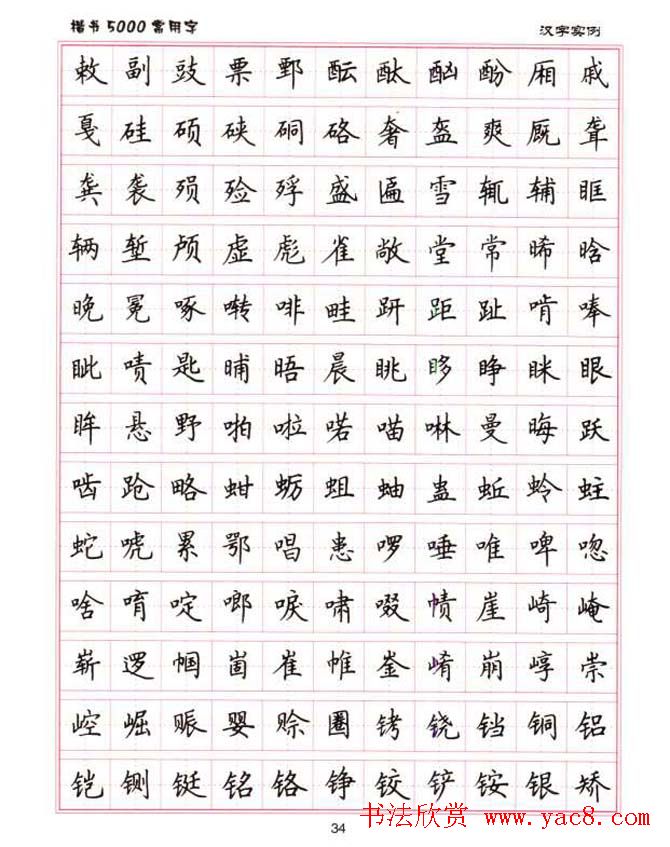 楷书5000常用字 汉字实例
敕副豉票鄄酝酞酗酚厢戚
戛硅硕硖硐硌奢盔爽厩聋
龚袭殒殓殍盛匾雪辄辅眶
辆堑颅虚彪雀敞堂常晞晗
晚冕啄啭啡畦趼距趾啃唪
眦啧匙晡晤晨眺眵睁眯眼
眸悬野啪啦喏喵啉曼晦跃
啮跄略蚶蛎蛆蚰蛊蚯蛉蛀
蛇唬累鄂唱患啰唾唯啤唿
啥唷啶啷唳啸啜帻崖崎崦
崭逻帼崮崔帷崟崤崩崞崇
崆崛赈婴赊圈铐铙铛铜铝
铠铡铤铭铬铮铰铲铵银矫
34
书法欣赏 www.yac8.com